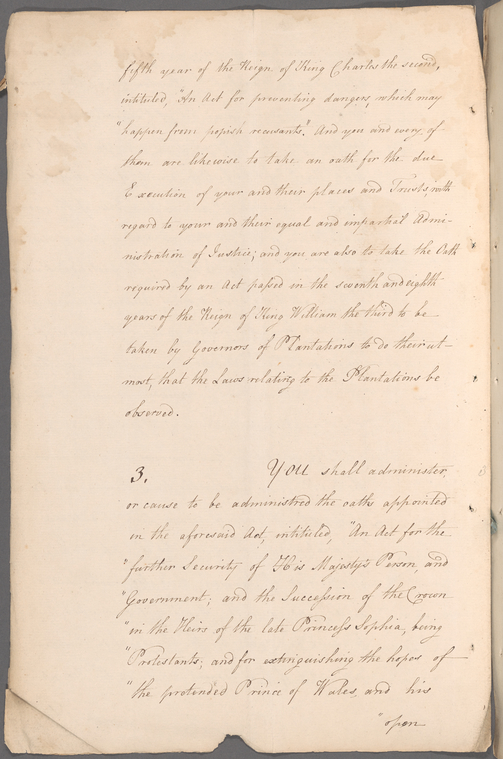 fifth year of the Reign of King Charles the second,
intituled, "An Act for preventing dangers, which may
"happen from popish recusants". And you and every of
them are likewise to take an oath for the due
Execution of your and their places and Trusts, with
regard to your and their equal and impartial Admi-
nistration of Justice; and you are also to take the Oath
required by an Act passed in the seventh and eighth
years of the Reign of King William the third to be
taken by Governors of Plantations to do their ut-
most, that the Laws relating to the Plantations be
observed.
3. YOU shall administer
or cause to be administred the oaths appointed
in the aforesaid Act, intituled, "An Act for the
"further Security of His Majesty's Person, and
"Government; and the Succession of the Crown
"in the Heirs of the late Princess Sophia, being
"Protestants; and for extinguishing the hopes of
"the pretended Prince of Wales, and his
"open